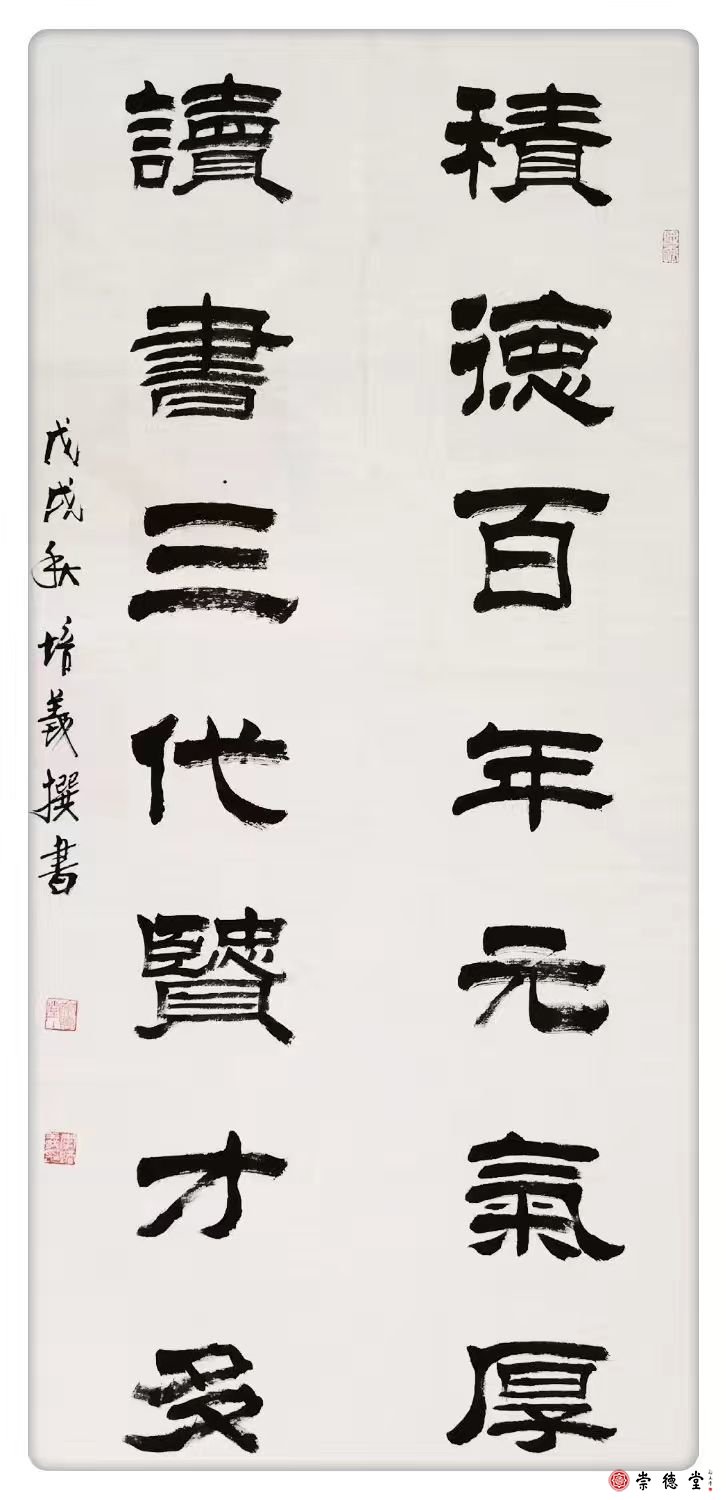 積德百年元氣厚
讀書三代賢才多
戊戌秋培義撰書
崇德堂